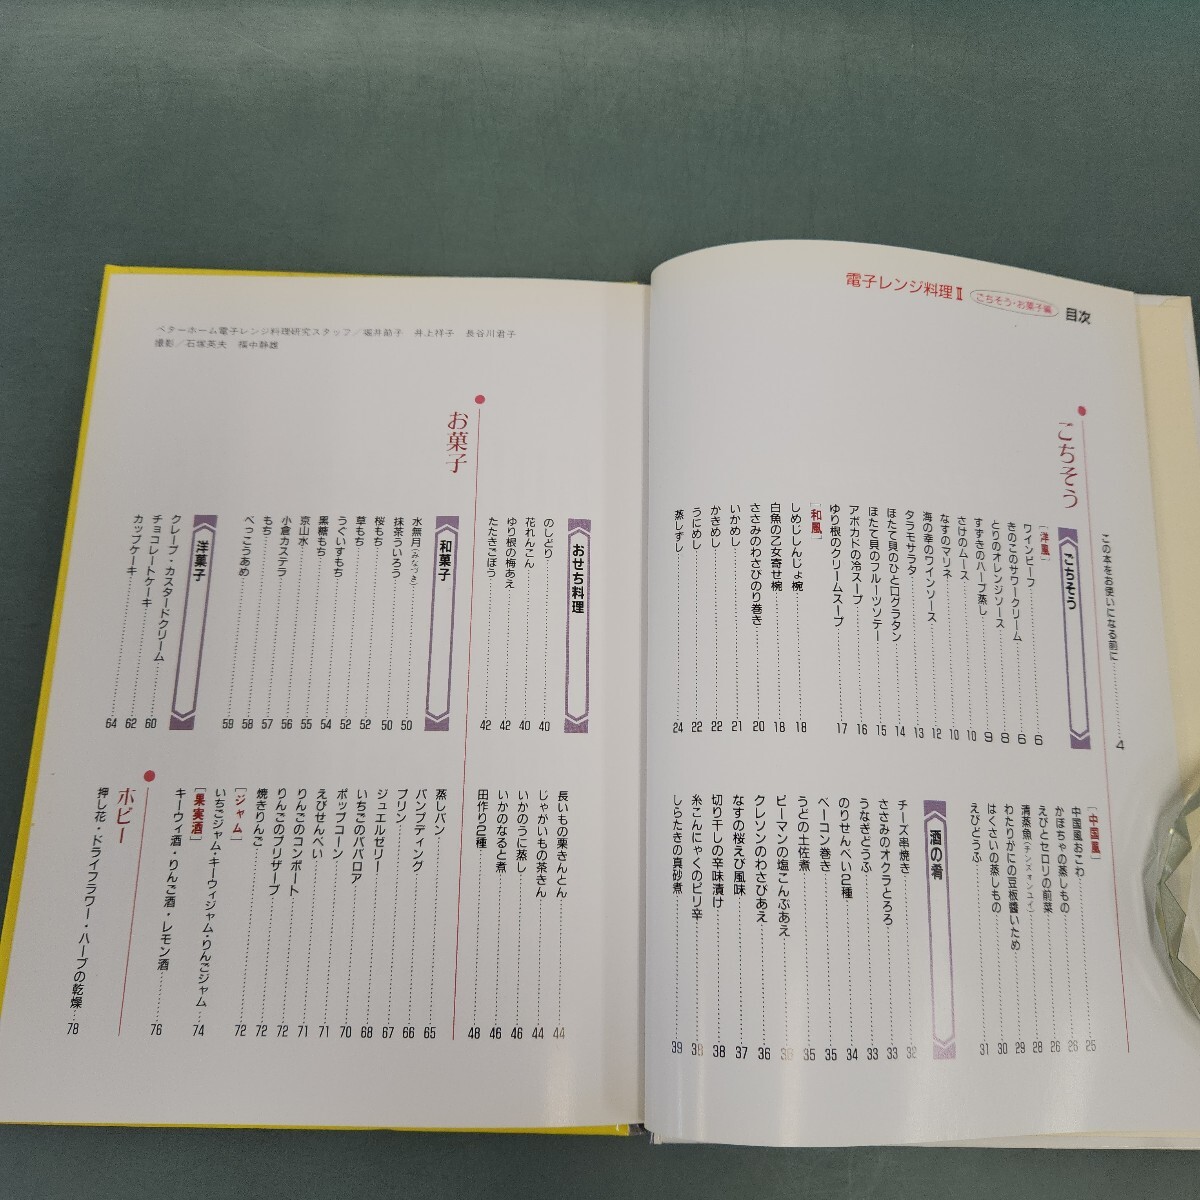 電子レンジ料理Ⅱ
ごちそう・お菓子編
目次
この本をお使いになる前に 4
ごちそう
ごちそう
[洋風]
ワインビーフ 6
きのこのサワークリーム 6
とりのオレンジソース 8
すずきのハーブ蒸し 9
さけのムース 10
なすのマリネ 10
海の幸のワインソース 12
タラモサラタ 13
ほたて貝のひと口グラタン 14
ほたて貝のフルーツソテー 15
アボカドの冷スープ 16
ゆり根のクリームスープ 17
[和風]
しめじしんじょ椀 18
白魚の乙女寄せ椀 18
ささみのわさびのり巻き 20
いかめし 21
かきめし 22
うにめし 22
蒸しずし 24
[中国風]
中国風おこわ 25
かぼちゃの蒸しもの 26
えびとセロリの前菜 26
清蒸魚(チンズォンユイ) 28
わたりがにの豆板醬いため 29
はくさいの蒸しもの 30
えびどうふ 31
酒の肴
チーズ串焼き 32
ささみのオクラとろろ 33
うなぎどうふ 33
のりせんべい2種 34
ベーコン巻き 35
うどの土佐煮 35
ピーマンの塩こんぶあえ 36
クレソンのわさびあえ 36
なすの桜えび風味 37
切り干しの辛味漬け 38
糸こんにゃくのピリ辛 38
しらたきの真砂煮 39
ベターホーム電子レンジ料理研究スタッフ/堀井節子 井上祥子 長谷川君子
撮影/石塚英夫 橫中靜雄
おせち料理
のしどり 40
花れんこん 40
ゆり根の梅あえ 42
たたきごぼう 42
長いもの栗きんとん 44
じゃがいもの茶きん 44
いかのうに蒸し 46
いかのなると煮 46
田作り2種 48
お菓子
和菓子
水無月(みなづき) 50
抹茶ういろう 50
桜もち 52
草もち 52
うぐいすもち 54
黒糖もち 55
京山水 56
小倉カステラ 57
もち 58
べっこうあめ 59
洋菓子
クレープ・カスタードクリーム 60
チョコレートケーキ 62
カップケーキ 64
蒸しパン 65
パンプディング 66
プリン 67
ジュエルゼリー 68
いちごのババロア 70
ポップコーン 71
えびせんべい 71
りんごのコンポート 72
りんごのプリザーブ 72
焼きりんご 72
[ジャム]
いちごジャム・キーウィジャム・りんごジャム 74
[果実酒]
キーウィ酒・りんご酒・レモン酒 76
ホビー
押し花・ドライフラワー・ハーブの乾燥 78